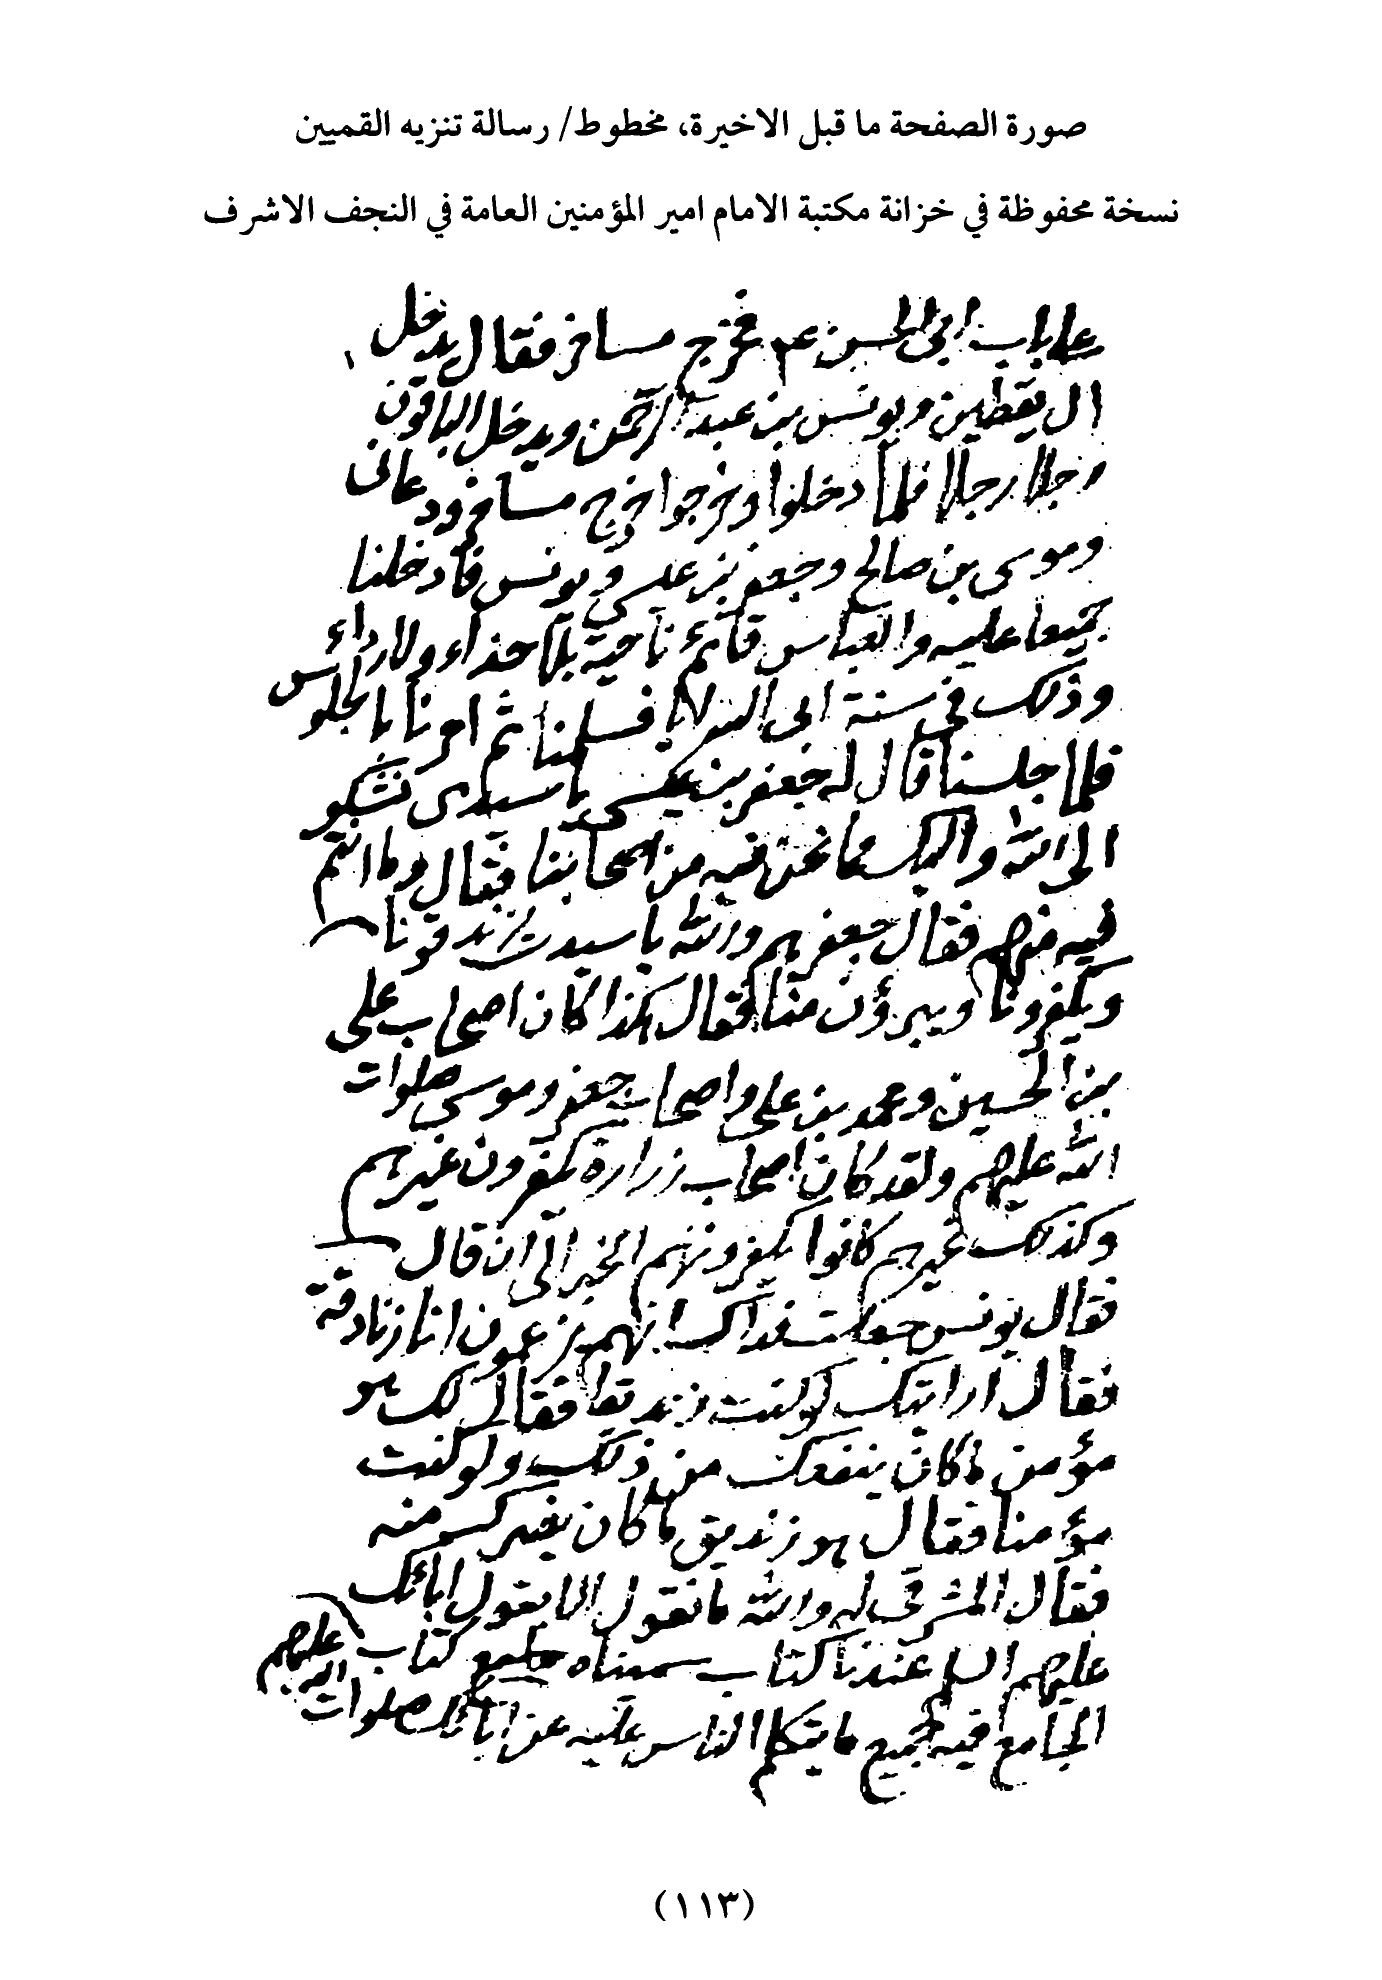 صورة الصفحة ما قبل الاخيرة، مخطوط/ رسالة تنزيه القميين
نسخة محفوظة في خزانة مكتبة الامام امير المؤمنين العامة في النجف الاشرف
على باب ابى الحسن عم فخرج مسافر فقال يدخل
ال يقطين ويونس بن عبد الرحمن ويدخل الباقون
رجلا رجلا فلما دخلوا وخرجوا خرج مسافر ودعانى
وموسى بن صالح وجعفر بن عيسى ويونس فادخلنا
جميعا عليه والعباس قائم ناحية بلا حذاء ولا رداء
وذلك فى سنة ابى السرايا فسلمنا ثم امرنا بالجلوس
فلما جلسنا قال له جعفر بن عيسى يا سيدى نشكو
الى الله واليك مما نحن فيه من اصحابنا فقال وما انتم
فيه منهم فقال جعفر هم والله يا سيدى يزندقونا
ويكفرونا ويبرؤن منا فقال هكذا كان اصحاب على
بن الحسين ومحمد بن على واصحاب جعفر وموسى صلوات
الله عليهم ولقد كان اصحاب زرارة يكفرون غيرهم
وكذلك غيرهم كانوا يكفرونهم الخبر الى ان قال
فقال يونس جعلت فداك انهم يزعمون انا زنادقة
فقال ارايتك لو كنت زنديقا فقال لك هو
مؤمن ما كان ينفعك من ذلك ولو كنت
مؤمنا فقال هو زنديق ما كان يضرك منه
فقال المشرقى له والله ما نقول الا ما يقول ابائك
عليهم السلم عندنا كتاب سميناه كتاب
الجامع فيه جميع ما يتكلم الناس عليه عن ابائك صلوات الله عليهم
(١١٣)